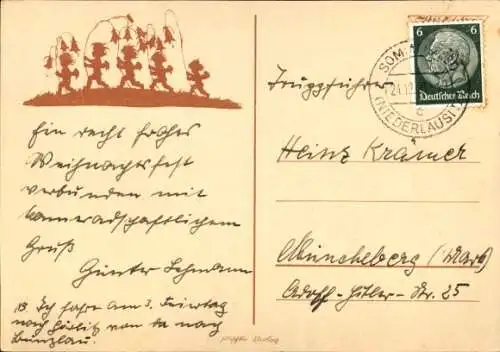 Ein recht frohes
Weihnachtsfest
verbunden mit
kameradschaftlichem
Gruß
Günter Lehmann
Ich fahre am 3. Feiertag
nach Görlitz von da nach
Bunzlau.
6 6
Deutsches Reich
(NIEDERLAUSITZ)
Truppführer
Heinz Kramer
Müncheberg (Mark)
Adolf-Hitler-Str. 25